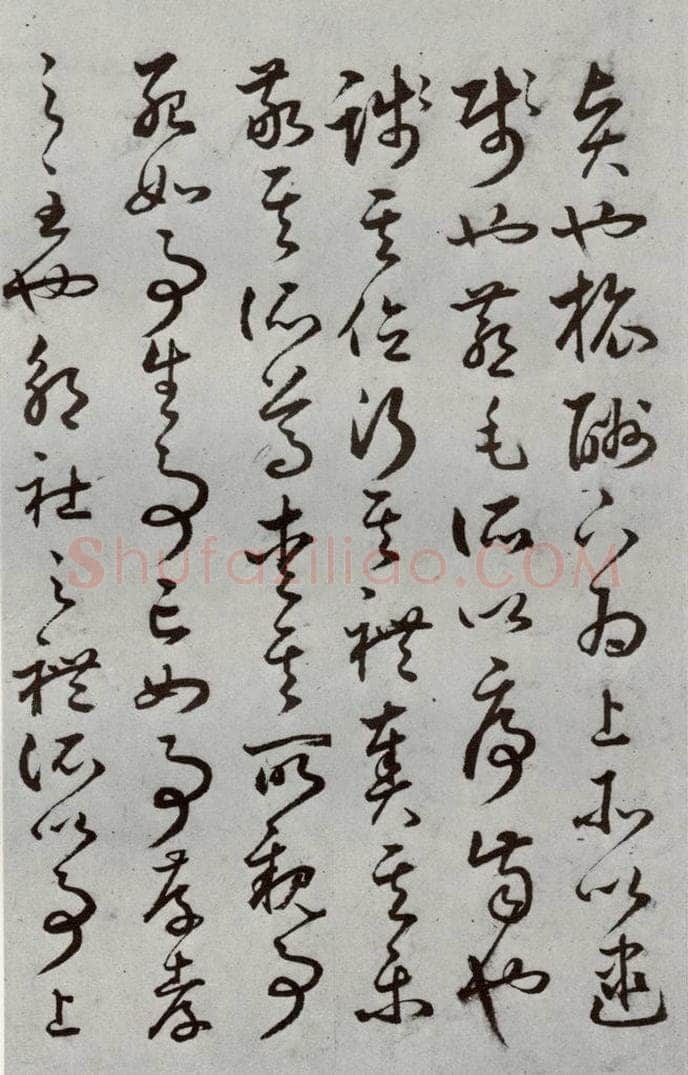 賢也旅酬下為上所以逮
賤也燕毛所以序齒也
踐其位行其禮奏其樂
敬其所尊愛其所親事
死如事生事亡如事存孝
之至也郊社之禮所以事上
Shufaziliao.COM